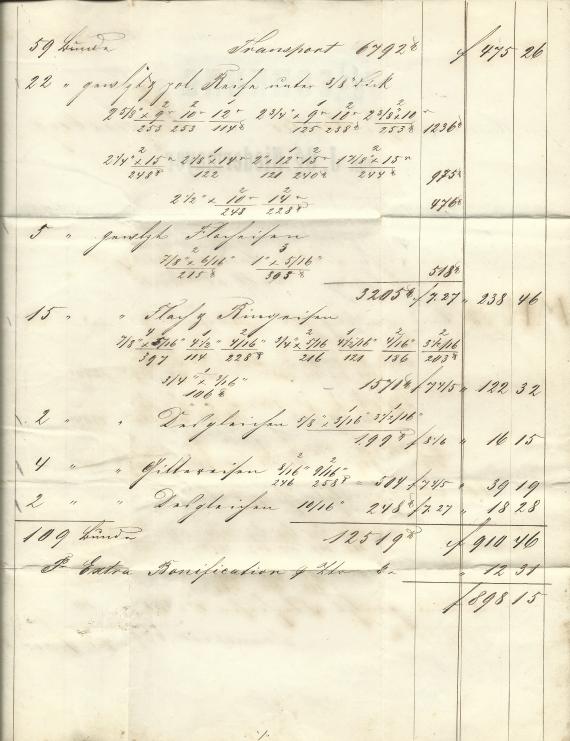 59 Bunde Transport 6792 ℔ f 475 26
22 " gewlzte pol. Reife unter 3/8" Dick
2 5/8" x 9" 10" 12" 2 3/4" x 9" 10" 2 3/8 x 10
253 253 114 ℔ 125 238 ℔ 253 ℔ 1236 ℔
2 1/4" x 15" 2 1/8" x 14" 2" x 12" 15" 1 7/8" x 15"
248 ℔ 122 121 240 ℔ 244 ℔ 975 ℔
2 1/2" x 10" 14"
248 228 ℔ 476 ℔
5 " gewlzt Flacheisen
7/8" x 6/16" 1" x 5/16"
215 ℔ 303 ℔ 518 ℔
3205 ℔ f 7.27 " 238 46
15 " " Flach & Ringeisen
7/8" x 5/16" 4 1/2 4/16" 3/4" x 5/16 4 1/2/16" 4/16" 3 1/2/16
397 114 228 ℔ 216 121 186 203 ℔
3/4" x 3/16"
106 ℔ 1571 ℔ f 7 45 " 122 32
2 " " Desgleichen 5/8" x 3/16 3 1/2/16"
199 ℔ f 8 6 " 16 15
4 " " Gittereisen 8/16" 9/16"
246 258 ℔ = 504 f 7 45 " 39 19
2 " " Desgleichen 10/16" 248 ℔ f 7.27 " 18 28
109 Bunde 12519 ℔ f 910 46
Extra Bonification " 12 31
f 898 15